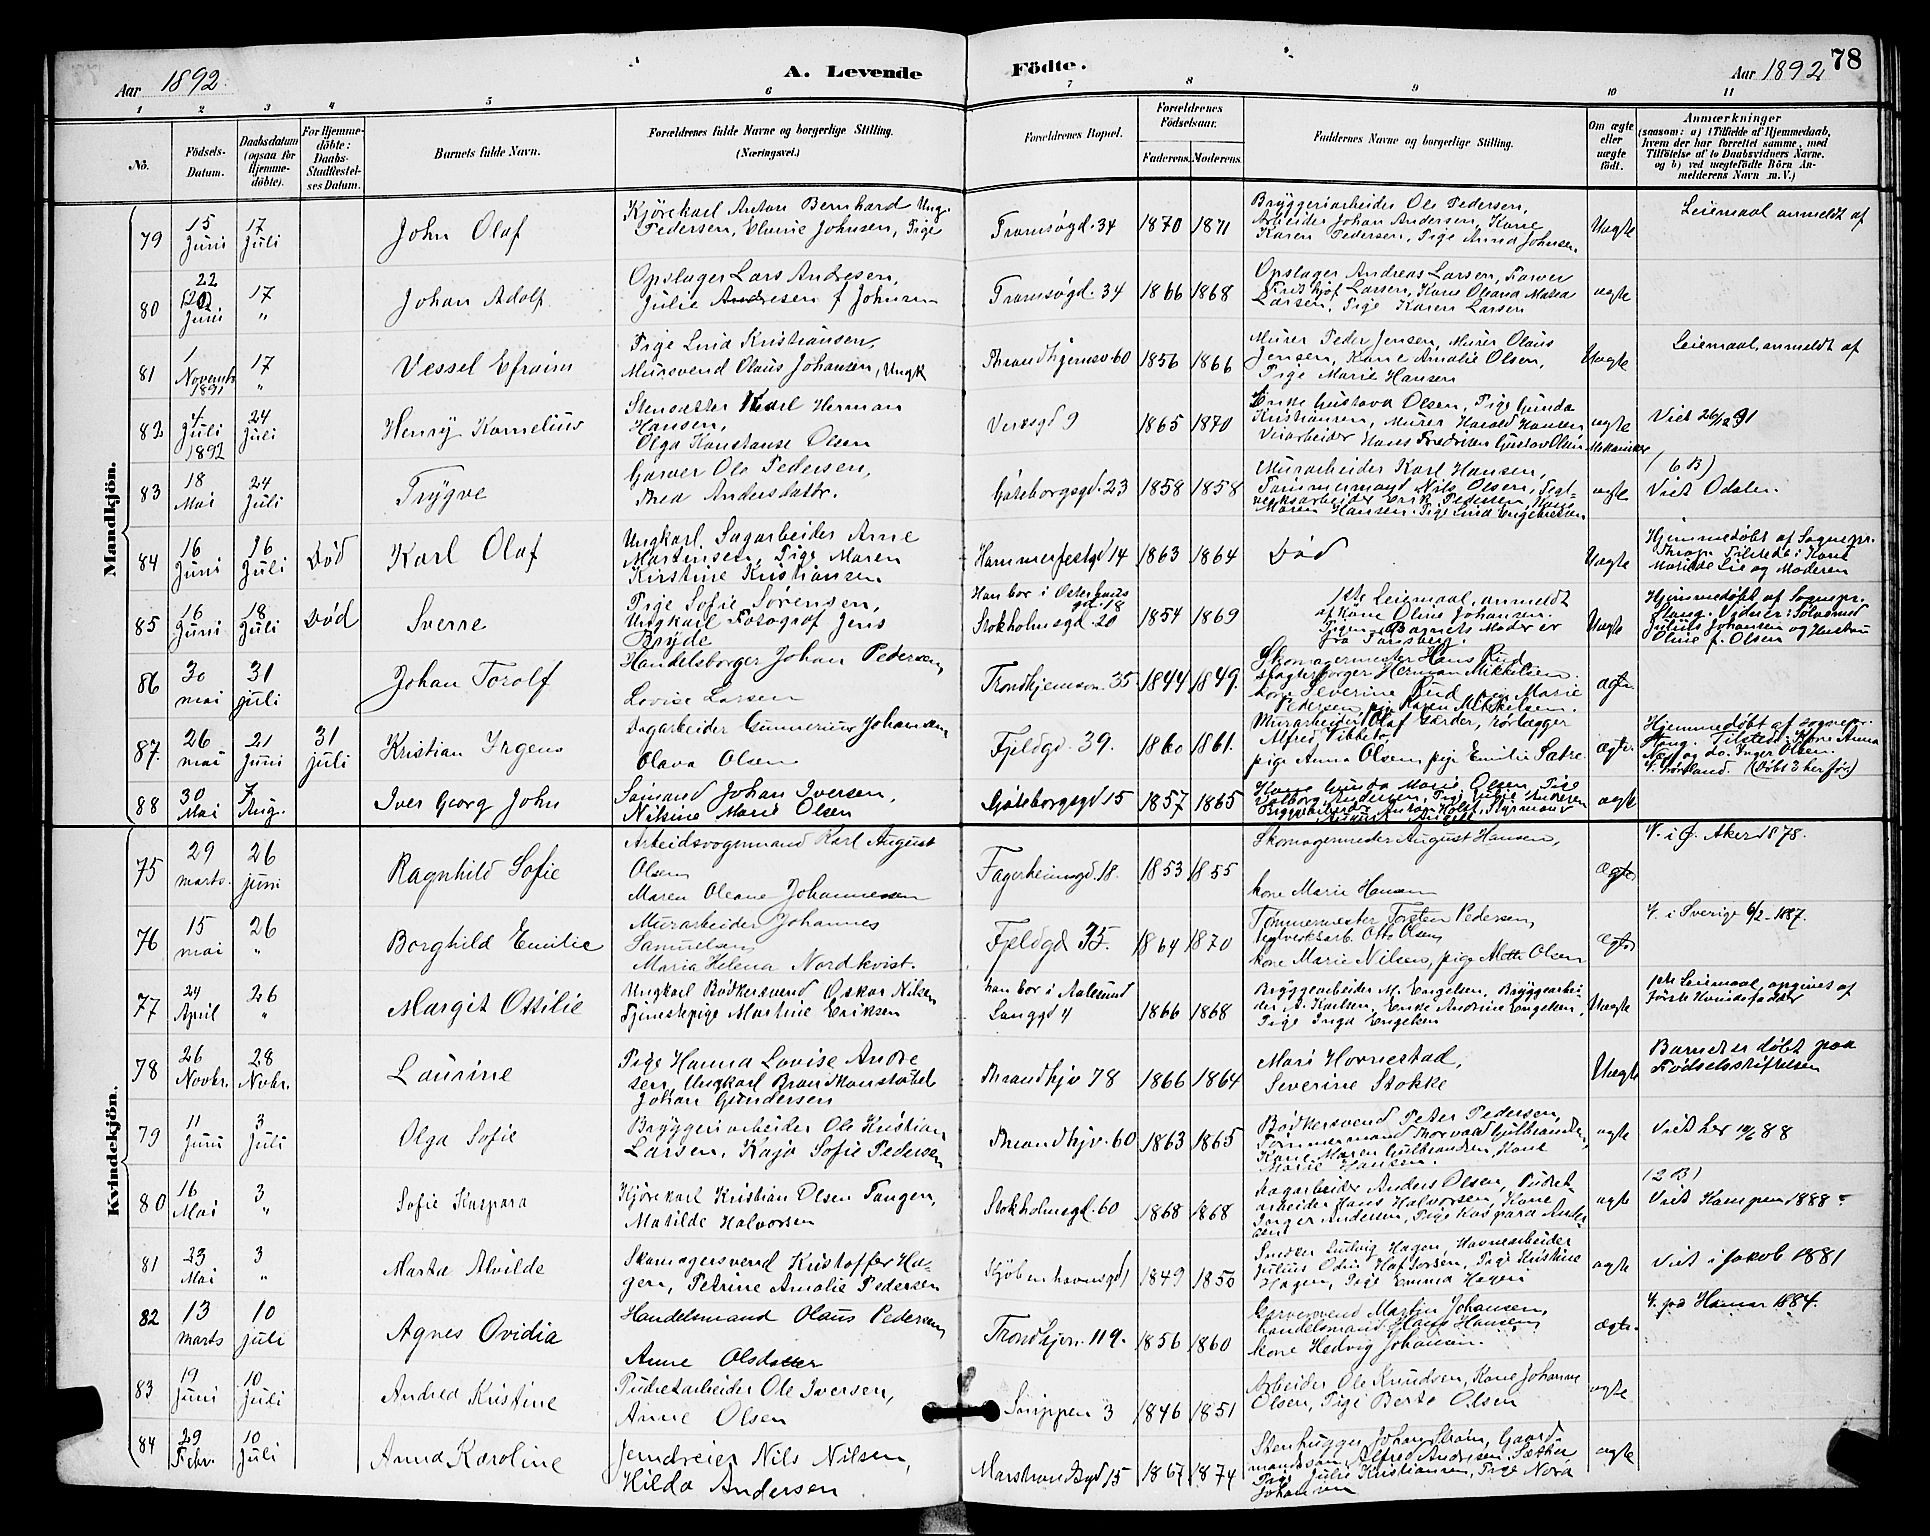 Aar 1892.
A. Levende
Födte.
Aar 1892
78
1 2 3 4 5 6 7 8 9 10 11
No.
Födsels-Datum.
Daabsdatum (ogsaa for Hjemme-döbte).
For Hjemme-döbte: Daabs-Stadfæstel-ses Datum.
Barnets fulde Navn.
Forældrenes fulde Navne og borgerlige Stilling. (Næringsvei.)
Forældrenes Bopæl.
Forældrenes Födselsaar.
Faderens. Moderens.
Faddernes Navne og borgerlige Stilling.
Om ægte eller uægte födt.
Anmærkninger
(saasom: a) i Tilfælde af Hjemmedaab, hvem der har forrettet samme, med Tilföielse af to Daabsvidners Navne. og b) ved uægtefödte Börn An-melderens Navn m. V.)
Mandkjön.
79 15 Juni 17 Juli John Olaf
Kjörekarl Anton Bernhard Ungk. Pedersen, Johnsen, Pige
Tromsögd. 34 1870 1871
Bryggeriarbeider Ole Pedersen, Arbeider Johan Andersen, Kone Karen Pedersen, Pige Anna Johnsen.
Uægte
Leiemaal anmeldt af
80 22 Juni 17 " Johan Adolf
Opslager Lars Andresen, Julie Andresen f Johnsen
Tromsögd. 34 1866 1868
Opslager Andreas Larsen, Farver Fridthjof Larsen, Kone Oleana Maria Larsen, Pige Karen Larsen
ægte
81 1 Novemb. 1891 17 " Vessel Efraim
Pige Lina Kristiansen, Mursvend Olaus Johansen, Ungk
Throndhjemsv 60 1856 1866
Murer Peder Jensen, Murer Olaus Jensen, Kone Amalie Olsen, Pige Marie Hansen
Uægte
Leiemaal, anmeldt af
82 4 Juli 1892 24 Juli Henry Kornelius
Stensætter Karl Herman Hansen, Olga Konstanse Olsen
Verksgd 9 1865 1870
Enke Gustava Olsen, Pige Gunda Kristiansen, Murer Harald Hansen
ægte
Viet 26/12 91
83 18 Mai 24 Juli Trygve
Garver Ole Pedersen, Thea Andersdattr.
Göteborgsgd. 23 1858 1858
Murarbeider Karl Hansen, Tömmermand Nils Olsen, Tegl-verksarbeider Erik Pedersen, Kone Maren Hansen. Pige Lina Engebretsen
ægte
(6 B) Viet Odalen.
84 16 Juni 16 Juli Död Karl Olaf
Ungkarl Sagarbeider Arne Martinsen, Pige Maren Kirstine Kristiansen
Hammerfestgd 14 1863 1864
Död
Uægte
Hjemmedøbt af Sognepr. Thrap. Tilstede: Kone Matilde Lie og Moderen
85 16 Juni 18 Juli Död Sverre
Pige Sofie Sörensen, Ungkarl Fotograf Jens Bryde
Han bor i Osterhausgd. 18 Stokholmsgd. 20 1854 1869
1ste Leiemaal, anmeldt af Kone Oline Johansen. Pigen Barnets Moder er fra Tönsberg.
Uægte
Hjemmedøbt af Sognepr. Stang. Vidner: Julius Johansen og Hustru Oline f. Olsen
86 30 mai 31 juli Johan Torolf
Handelsborger Johan Pedersen Lovise Larsen
Trondhjemsv. 35 1844 1849.
Skomagermester Hans Rud slagterborger Herman Mikkelsen. kone Severine Rud pige Marie Pedersen, pige Karen Mikkelsen.
ægte
87. 26 mai 21 Juni 31 juli Kristian Jrgens
Sagarbeider Gunnerius Johansen Olava Olsen
Fjeldgd. 39. 1860 1861.
Murarbeider Olaf Gärder, rörlægger Alfred pige Anna Olsen, pige Emilie Sætre
ægte.
Hjemmedøbt af sognepr. Stang. Tilstede: Kone Anna Næss og do. Inger Olsen. (Döbt 3 her för)
88 30 Mai 7 Aug. Iver Georg John
Sömand Johan Iversen, Nilsine Marie Olsen
Göteborgsgd 15 1857 1865
Kone Gunda Marie Olsen, Pige Valborg Andersen, Pige Julie Andresen
ægte
Kvindekjön.
75 29 marts. 26 juni Ragnhild Sofie
Arbeidsvognmand Karl August Olsen Maren Oleane Johannessen
Fagerheimsgd. 18. 1853 1855
Skomagermester August Hansen, kone Marie Hansen
Ægte
V. i Ø. Aker 1878.
76 15 mai 26 " Borghild Emilie
Murarbeider Johannes Samuelsen Maria Helena Nordkvist.
Fjeldgd 35. 1864 1870
Tömmermester Torsten Pedersen, teglverksarb. Otto Olsen kone Marie Nilsen, pige Mette Olsen
ægte
V. i Sverige 6/2 1887.
77 24 April 26 " Margit Ottilie
Ungkarl Bödkersvend Oskar Nilsen Tjenestepige Martine Eriksen
han bor i Aalesund Langgd 4 1866 1868
Bryggearbeider M. Engelsen, Bryggearbei-der A. Karlsen, Enke Andrine Engelsen, Pige Inga Engelsen
Uægte
1ste Leiemaal, opgives af
78 26 Novbr. 28 Novbr. Laurine
Pige Hanna Lovise Andre-sen, Ungkarl Brandkonstabel Johan Gundersen
Throndhjv 78 1866 1864
Mari Hornestad, Severine Stokke
Uægte
Barnet er døbt paa Födselsstiftelsen
79 11 Juni 3 Juli Olga Sofie
Bryggeriarbeider Ole Kristian Larsen, Kaja Sofie Pedersen
Throndhjv. 60 1863 1865
Bödkersvend Peter Pedersen, Tömmermand Thorvald Gulbrandsen, Kone Maren Gulbrandsen, Kone Marie Hansen.
ægte
Viet her 10/6 88
80 16 Mai 3 " Sofie Kaspara
Kjörekarl Kristian Olsen Tangen, Matilde Halvorsen
Stokholmsgd. 60 1868 1868
Sagarbeider Anders Olsen, Pudret-arbeider Hans Halvorsen, Kone Inger Andersen, Pige Kaspara Ander-sen
ægte
(2 B) Viet Kampen 1888
81 23 Mai 3 " Marta Alvilde
Skomagersvend Kristoffer Ha-gen, Petrine Amalie Pedersen
Kjöbenhavnsgd 1 1849 1850
Snedker Ludvig Hagen, Havnearbeider Julius Odin Haftorsen, Pige Kristine Hagen, Pige Emma Hagen
ægte
Viet i Jakob 1881
82 13 marts 10 juli Agnes Ovidia
Handelsmand Olaus Pedersen Anne Olsdatter
Trondhjem. 119. 1856 1860
Garversvend Martin Johansen, handelsmand Hans Hansen, kone Hedvig Johansen.
ægte.
V. paa Hamar 1884.
83 19 Juni 10 Juli Andrea Kristine
Pudretarbeider Ole Iversen, Anne Olsen
Snippen 3 1846 1851
Arbeider Ole Knudsen, Kone Johanne Olsen, Pige Berte Olsen
ægte
84 29 Febr. 10 Juli Anna Karoline
Jerndreier Nils Nilsen, Hilda Andersen
Marstrandgd 15 1867 1874
Stenhugger Johan Ström, Gaard-mandssön Alfred Andresen Sæther Pige Julie Kristiansen, Pige Nora Johansen
ægte